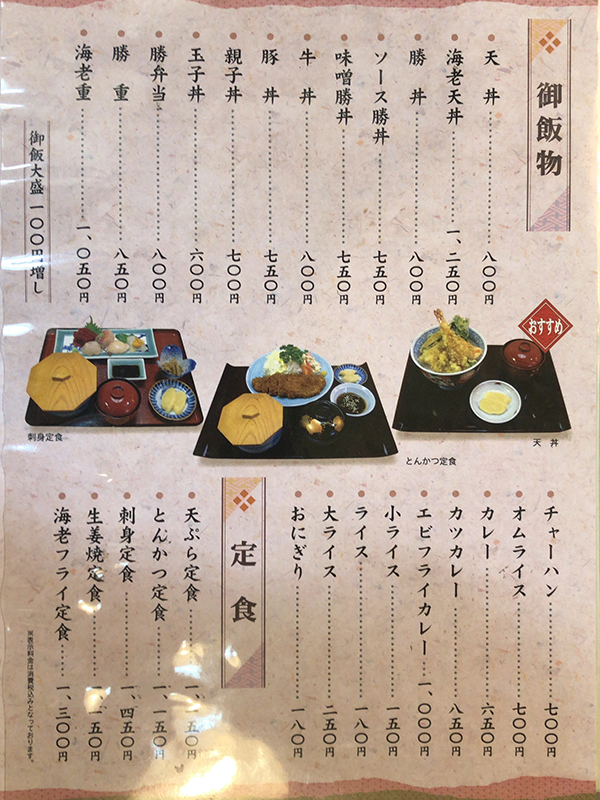 御飯物
天丼 八〇〇円
海老天丼 一、二五〇円
勝丼 八〇〇円
ソース勝丼 七五〇円
味噌勝丼 七五〇円
牛丼 八〇〇円
豚丼 七五〇円
親子丼 七〇〇円
玉子丼 六〇〇円
勝弁当 八〇〇円
勝重 八五〇円
海老重 一、〇五〇円
御飯大盛 一〇〇円増し
おすすめ
刺身定食
とんかつ定食
天丼
チャーハン 七〇〇円
オムライス 七〇〇円
カレー 六五〇円
カツカレー 八五〇円
エビフライカレー 一、〇〇〇円
小ライス 一五〇円
ライス 一八〇円
大ライス 二五〇円
おにぎり 一八〇円
定食
天ぷら定食 一、一五〇円
とんかつ定食 一、一五〇円
刺身定食 一、四五〇円
生姜焼定食 一、一五〇円
海老フライ定食 一、三〇〇円
※表示料金は消費税込みとなっております。